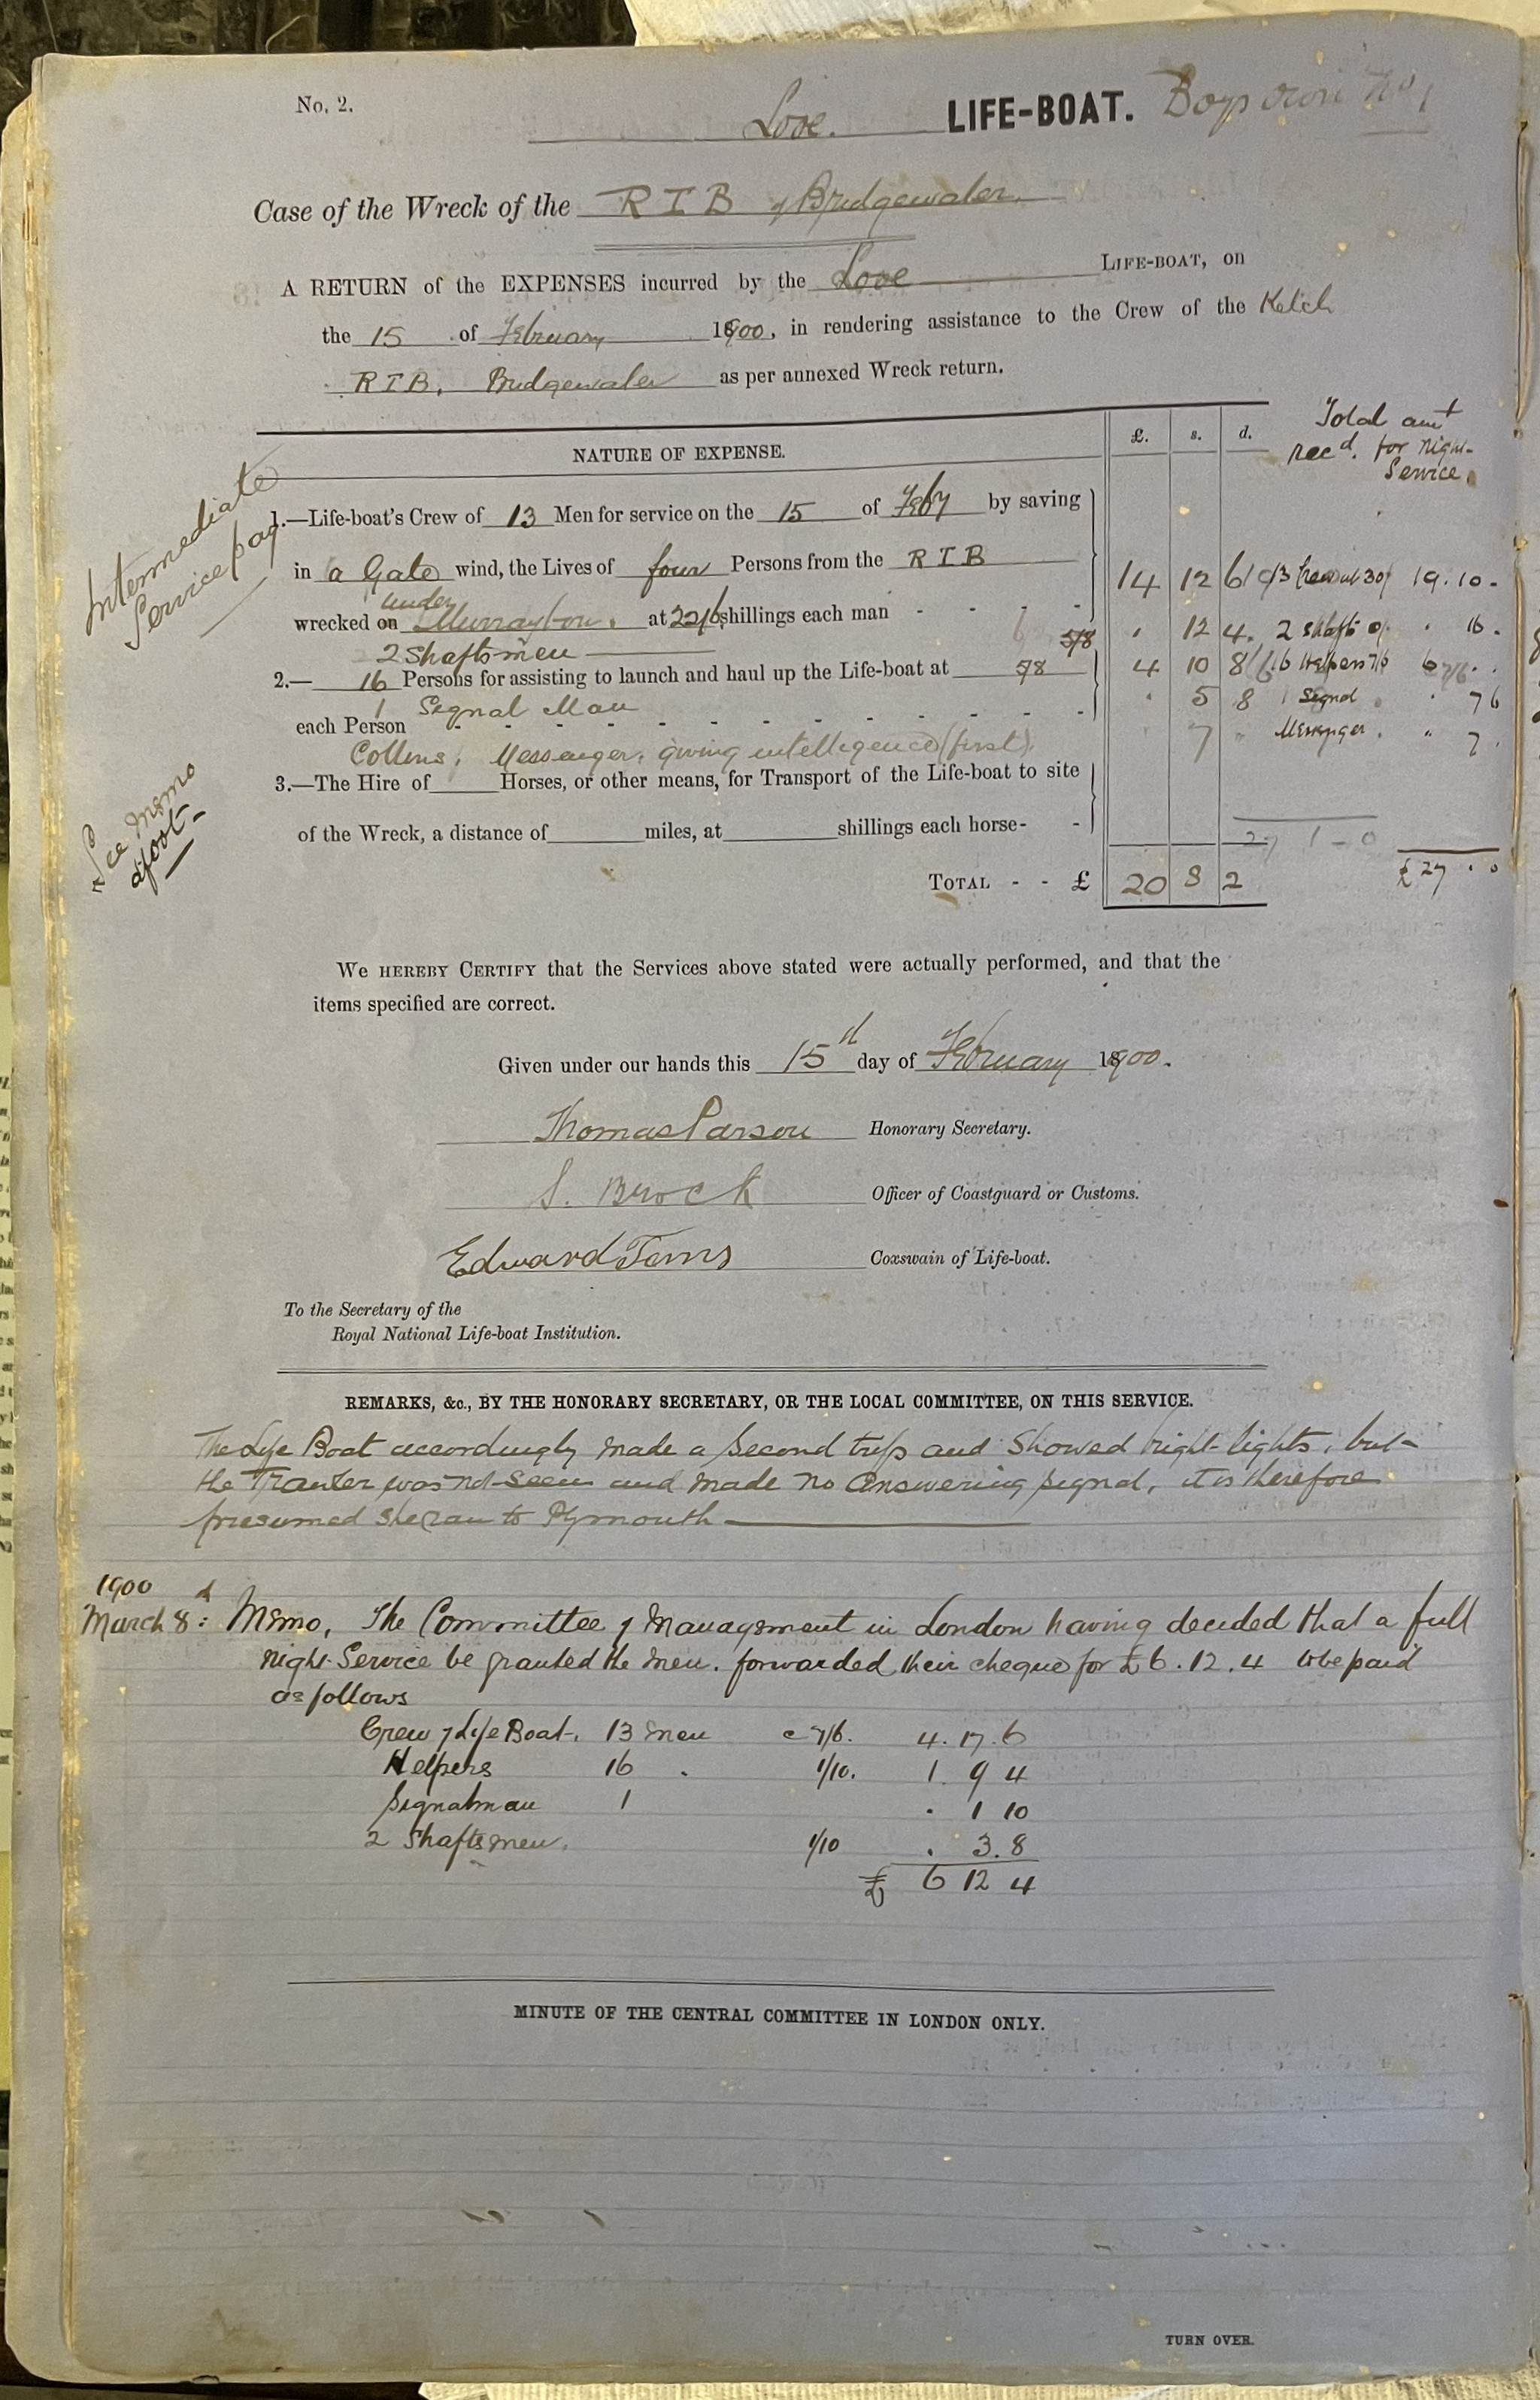 No. 2.
Looe. LIFE-BOAT. Boys own No 1
Case of the Wreck of the R I B of Bridgewater.
A RETURN of the EXPENSES incurred by the Looe LIFE-BOAT, on
the 15 of February 1900, in rendering assistance to the Crew of the Ketch
R I B, Bridgewater as per annexed Wreck return.
NATURE OF EXPENSE. £. s. d.
Total amt
recd. for night
Service.
Intermediate
Service pay
1.—Life-boat's Crew of 13 Men for service on the 15 of Feby by saving
in a Gale wind, the Lives of four Persons from the R I B
14 12 6 13 30/ 19.10-
under
wrecked on at 22/6 shillings each man
2 Shaftsmen 5/8 12 4. 2 shafts 16.
2.— 16 Persons for assisting to launch and haul up the Life-boat at 5/8 4 10 8 16 Helpers 7/6 6
1 Signal Man 5 8 1 Signal 7 6
each Person
Collins, Messenger, giving intelligence (first). 7 Messenger. 7
3.—The Hire of Horses, or other means, for Transport of the Life-boat to site
of the Wreck, a distance of miles, at shillings each horse-
See Memo
afoot-
27 1-0
TOTAL - - £ 20 8 2 £27 . 0
WE HEREBY CERTIFY that the Services above stated were actually performed, and that the
items specified are correct.
Given under our hands this 15th day of February 1900.
Thomas Parson Honorary Secretary.
S. Brock Officer of Coastguard or Customs.
Edward Toms Coxswain of Life-boat.
To the Secretary of the
Royal National Life-boat Institution.
REMARKS, &c., BY THE HONORARY SECRETARY, OR THE LOCAL COMMITTEE, ON THIS SERVICE.
The Life Boat accordingly made a second trip and showed bright lights, but
the Trawler was not seen and made no answering signal, it is therefore
presumed she ran to Plymouth
1900
March 8: Memo, The Committee of Management in London having decided that a full
night Service be granted the men. forwarded their cheque for £6.12.4 to be paid
as follows
Crew of Life Boat. 13 men @ 7/6. 4.17.6
Helpers 16 . 1/10. 1. 9 4
Signalman 1 . 1 10
2 Shaftsmen. 1/10 . 3.8
£ 6 12 4
MINUTE OF THE CENTRAL COMMITTEE IN LONDON ONLY.
TURN OVER.